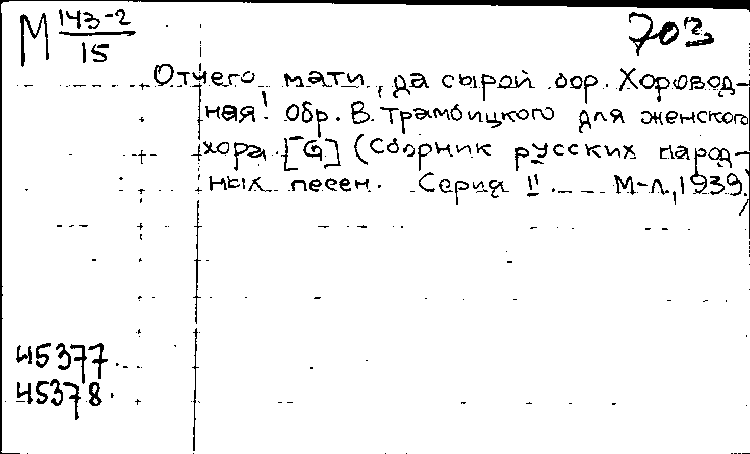 М 143-2
15
703
Отчего, мати, да сырой бор. Хоровод-
ная! Обр. В. Трамбицкого для женского
хора. [G] (Сборник русских народ-
ных песен. Серия II. — М-Л, 1939)
45377.
45378.